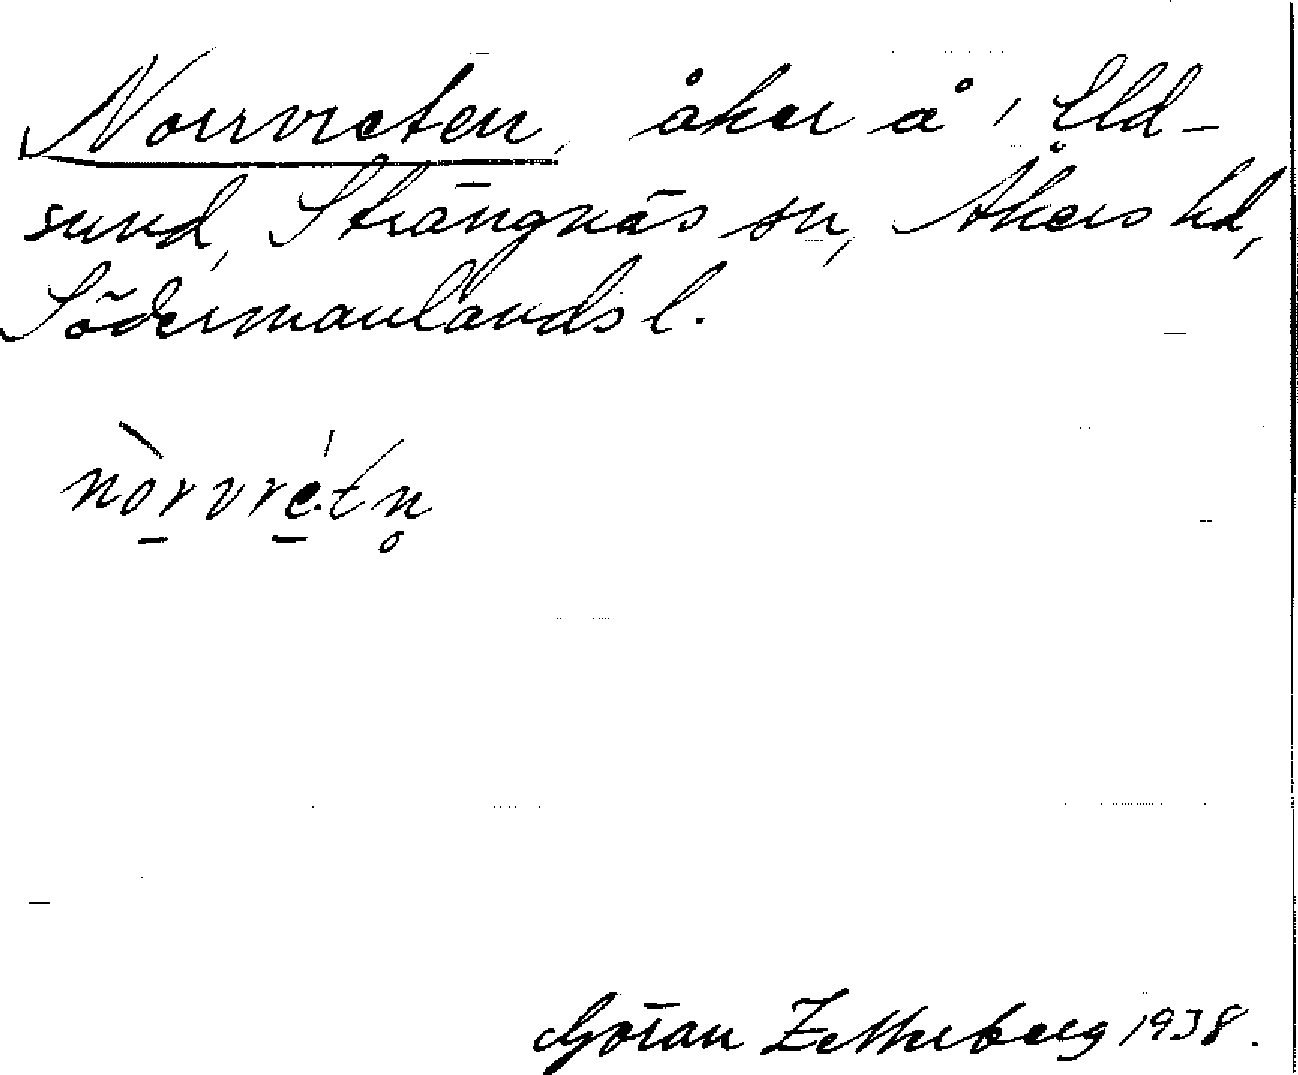 Norrvreten, åker å Eld-
sund, Strängnäs sn, Åkers hd,
Södermanlands l.
nòrvré.tn̥
Göran Zetterberg 1938.